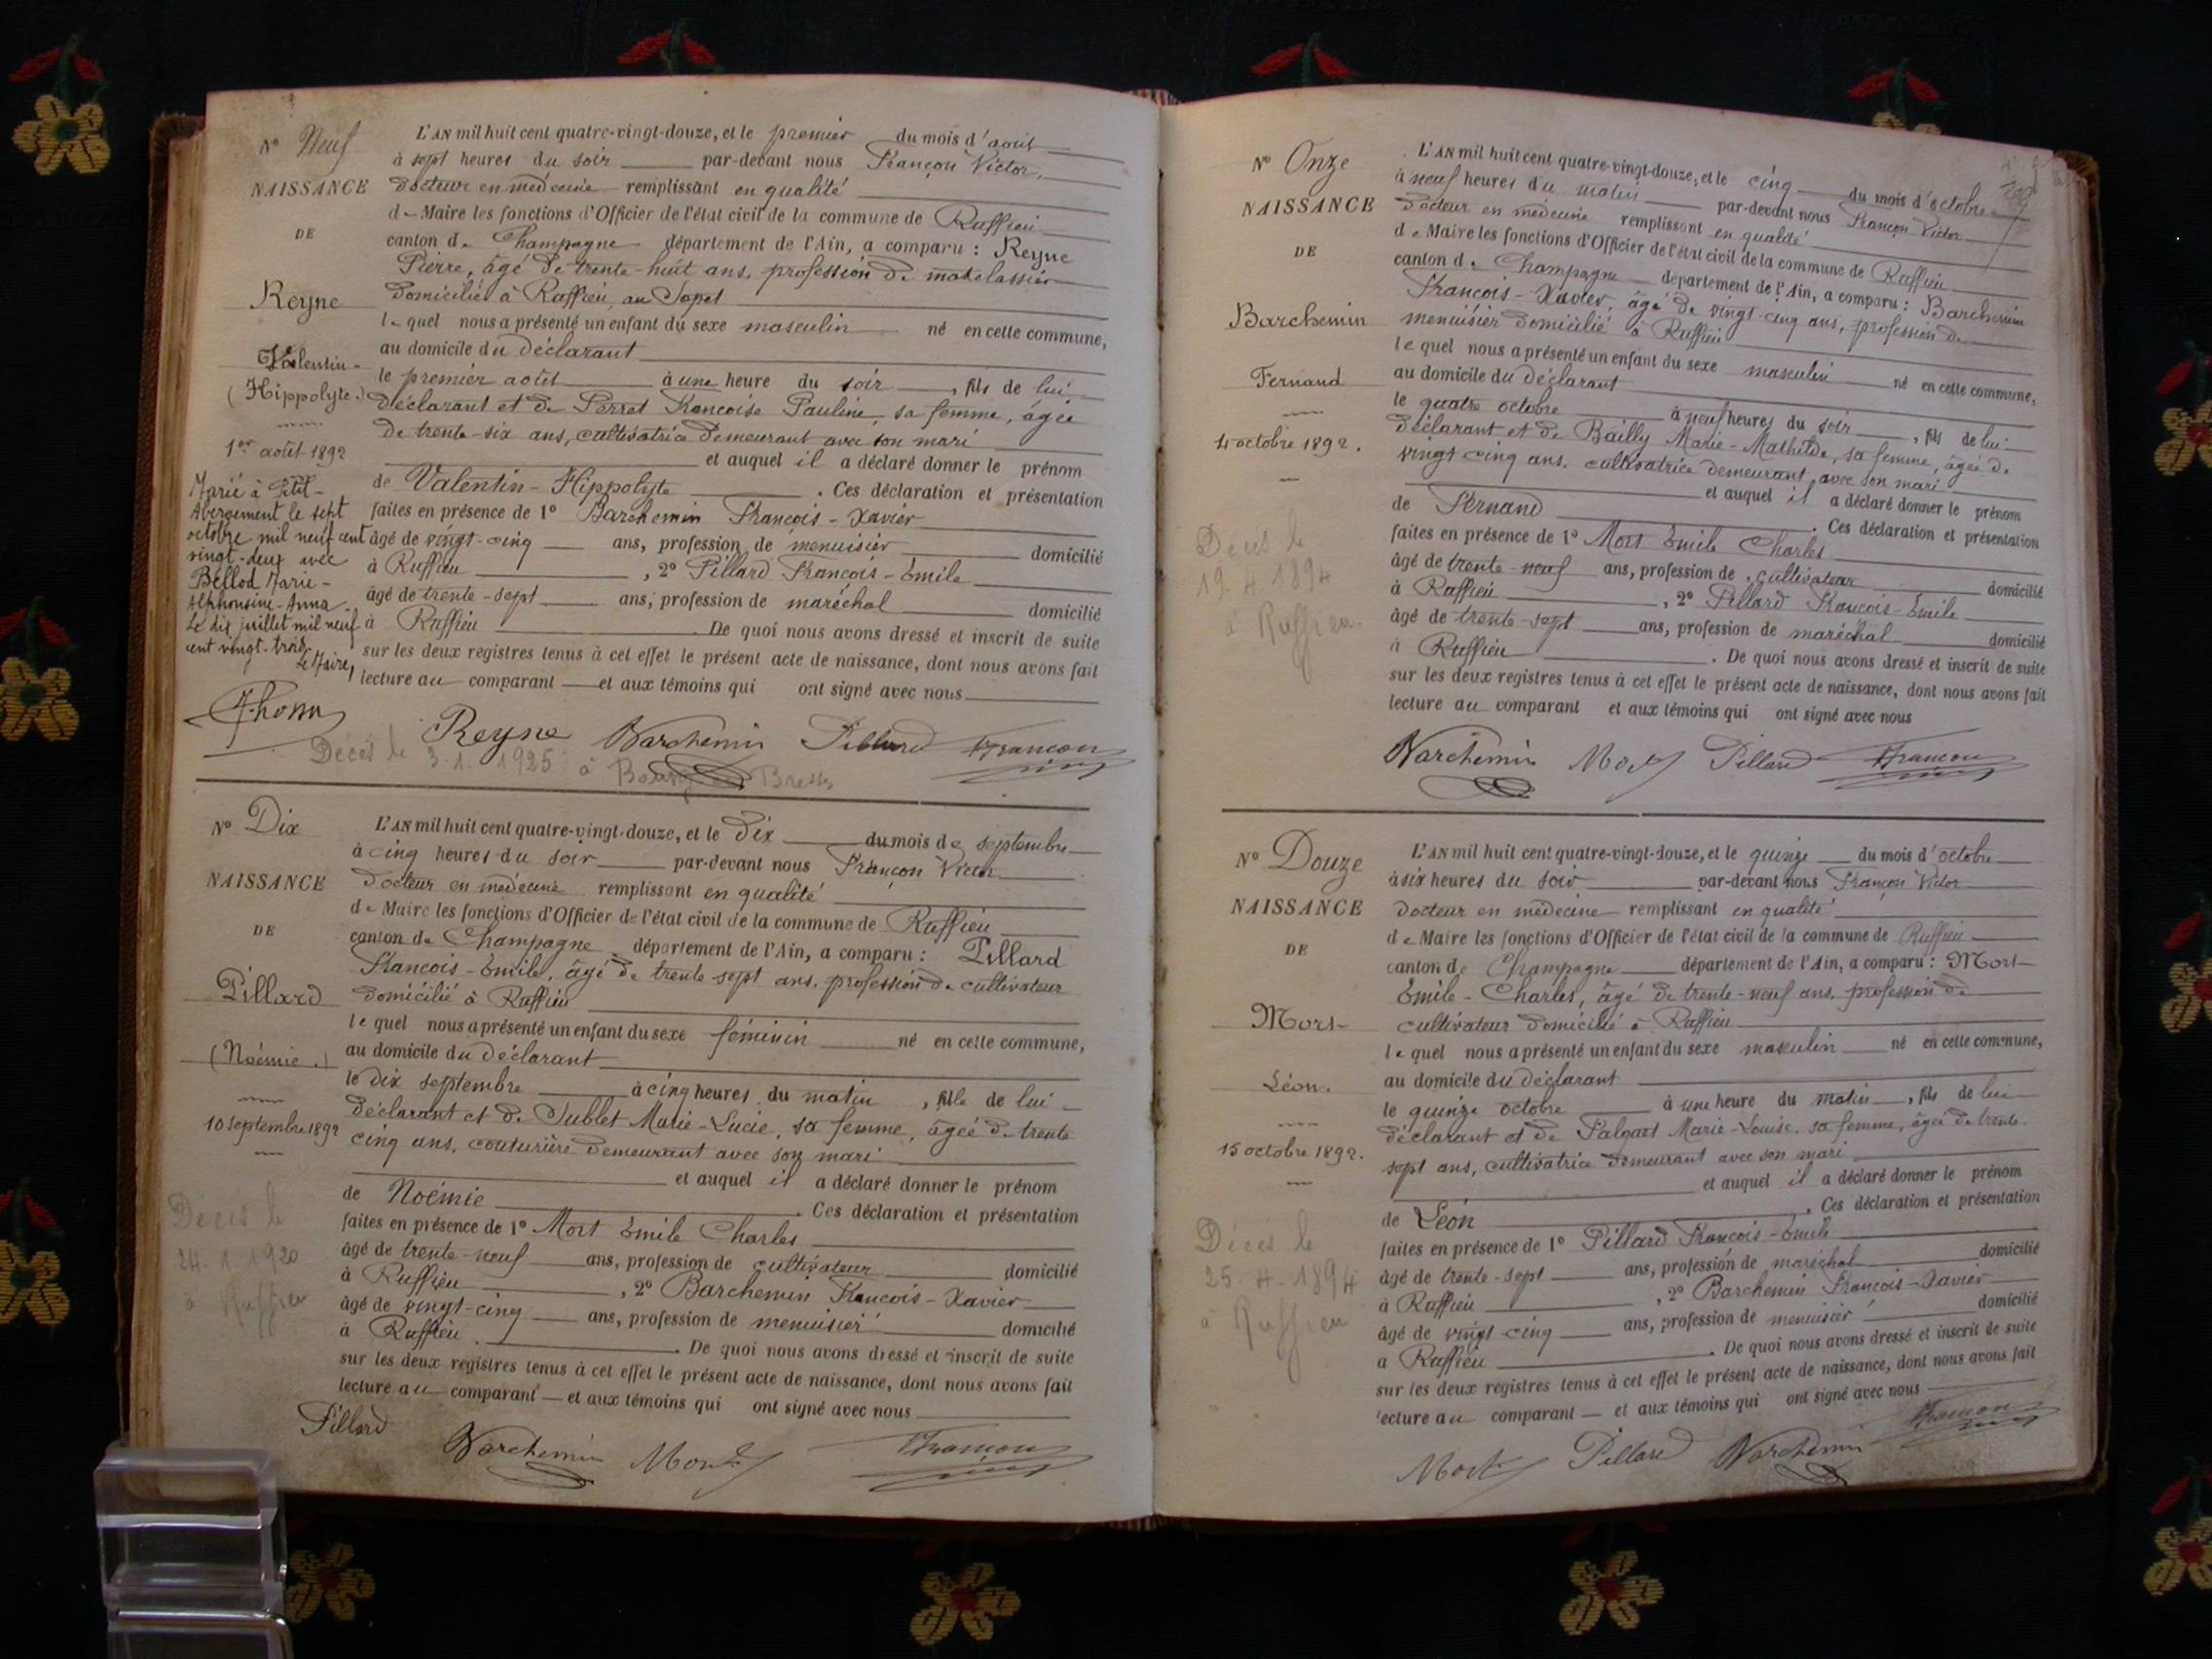 N° Neuf
NAISSANCE
DE
Reyne
Valentin-
(Hippolyte.)
1er août 1892
Marié à Petit-
Abergement le sept
octobre mil neuf cent
vingt-deux avec
Bellod Marie-
Alphonsine-Anna.
Le dix juillet mil neuf
cent vingt-trois
Le Maire,
L'AN mil huit cent quatre-vingt-douze, et le premier du mois d'août
à sept heures du soir par-devant nous Françon Victor,
docteur en médecine remplissant en qualité
de Maire les fonctions d'Officier de l'état civil de la commune de Ruffieu
canton de Champagne département de l'Ain, a comparu : Reyne
Pierre, âgé de trente-huit ans, profession de matelassier
domicilié à Ruffieu, au Sapet
le quel nous a présenté un enfant du sexe masculin né en cette commune,
au domicile du déclarant
le premier août à une heure du soir, fils de lui
déclarant et de Perret Françoise Pauline, sa femme, âgée
de trente-six ans, cultivatrice demeurant avec son mari
et auquel il a déclaré donner le prénom
de Valentin-Hippolyte. Ces déclaration et présentation
faites en présence de 1° Barchemin François-Xavier
âgé de vingt-cinq ans, profession de menuisier domicilié
à Ruffieu, 2° Pillard François-Emile
âgé de trente-sept ans, profession de maréchal domicilié
à Ruffieu. De quoi nous avons dressé et inscrit de suite
sur les deux registres tenus à cet effet le présent acte de naissance, dont nous avons fait
lecture au comparant et aux témoins qui ont signé avec nous
Reyne Barchemin Pillard Françon
Décés le 3.1.1925 à Bourg en Bresse
N° Dix
NAISSANCE
DE
Pillard
(Noémie.)
10 septembre 1892
Décés le
24.1.1920
à Ruffieu
L'AN mil huit cent quatre-vingt-douze, et le dix du mois de septembre
à cinq heures du soir par-devant nous Françon Victor
docteur en médecine remplissant en qualité
de Maire les fonctions d'Officier de l'état civil de la commune de Ruffieu
canton de Champagne département de l'Ain, a comparu : Pillard
François-Emile, âgé de trente sept ans, profession de cultivateur
domicilié à Ruffieu
le quel nous a présenté un enfant du sexe féminin né en cette commune,
au domicile du déclarant
le dix septembre à cinq heures du matin, fille de lui
déclarant et de Jublet Marie-Lucie, sa femme, âgée de trente
cinq ans, couturière demeurant avec son mari
et auquel il a déclaré donner le prénom
de Noémie. Ces déclaration et présentation
faites en présence de 1° Mort Emile Charles
âgé de trente-neuf ans, profession de cultivateur domicilié
à Ruffieu, 2° Barchemin François-Xavier
âgé de vingt-cinq ans, profession de menuisier domicilié
à Ruffieu. De quoi nous avons dressé et inscrit de suite
sur les deux registres tenus à cet effet le présent acte de naissance, dont nous avons fait
lecture au comparant et aux témoins qui ont signé avec nous
Pillard
Barchemin Mort Françon
N° Onze
NAISSANCE
DE
Barchemin
Fernand
4 octobre 1892.
Décés le
19.4.1894
à Ruffieu.
L'AN mil huit cent quatre-vingt-douze, et le cinq du mois d'octobre
à neuf heures du matin par-devant nous Françon Victor
docteur en médecine remplissant en qualité
de Maire les fonctions d'Officier de l'état civil de la commune de Ruffieu
canton de Champagne département de l'Ain, a comparu : Barchemin
François-Xavier, âgé de vingt-cinq ans, profession de
menuisier domicilié à Ruffieu
le quel nous a présenté un enfant du sexe masculin né en cette commune,
au domicile du déclarant
le quatre octobre à neuf heures du soir, fils de lui
déclarant et de Bailly Marie-Mathilde, sa femme, âgée de
vingt cinq ans, cultivatrice demeurant avec son mari
et auquel il a déclaré donner le prénom
de Fernand. Ces déclaration et présentation
faites en présence de 1° Mort Emile Charles
âgé de trente-neuf ans, profession de cultivateur domicilié
à Ruffieu, 2° Pillard François-Emile
âgé de trente-sept ans, profession de maréchal domicilié
à Ruffieu. De quoi nous avons dressé et inscrit de suite
sur les deux registres tenus à cet effet le présent acte de naissance, dont nous avons fait
lecture au comparant et aux témoins qui ont signé avec nous
Barchemin Mort Pillard Françon
N° Douze
NAISSANCE
DE
Mort-
Léon.
15 octobre 1892.
Décés le
25.4.1894
à Ruffieu
L'AN mil huit cent quatre-vingt-douze, et le quinze du mois d'octobre
à six heures du soir par-devant nous Françon Victor
docteur en médecine remplissant en qualité
de Maire les fonctions d'Officier de l'état civil de la commune de Ruffieu
canton de Champagne département de l'Ain, a comparu : Mort-
Emile-Charles, âgé de trente-neuf ans, profession de
cultivateur domicilié à Ruffieu
le quel nous a présenté un enfant du sexe masculin né en cette commune,
au domicile du déclarant
le quinze octobre à une heure du matin, fils de lui
déclarant et de Marie-Louise, sa femme, âgée de trente
sept ans, cultivatrice demeurant avec son mari
et auquel il a déclaré donner le prénom
de Léon. Ces déclaration et présentation
faites en présence de 1° Pillard François-Emile
âgé de trente-sept ans, profession de maréchal domicilié
à Ruffieu, 2° Barchemin François-Xavier
âgé de vingt cinq ans, profession de menuisier domicilié
à Ruffieu. De quoi nous avons dressé et inscrit de suite
sur les deux registres tenus à cet effet le présent acte de naissance, dont nous avons fait
lecture au comparant et aux témoins qui ont signé avec nous
Mort Pillard Barchemin Françon